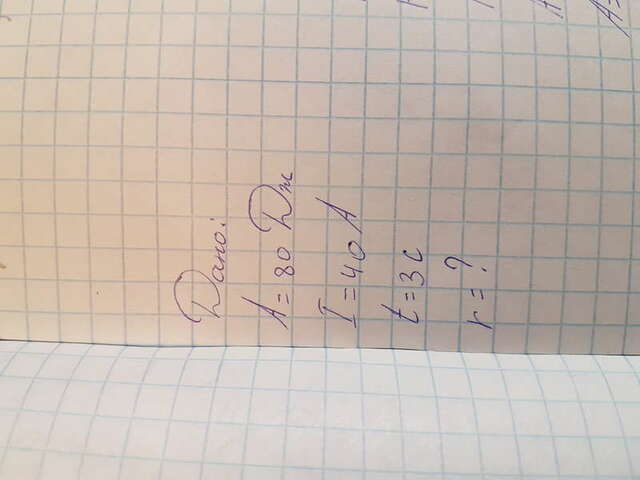 Дано:
A = 80 Дж
I = 40 A
t = 3 c
r = ?